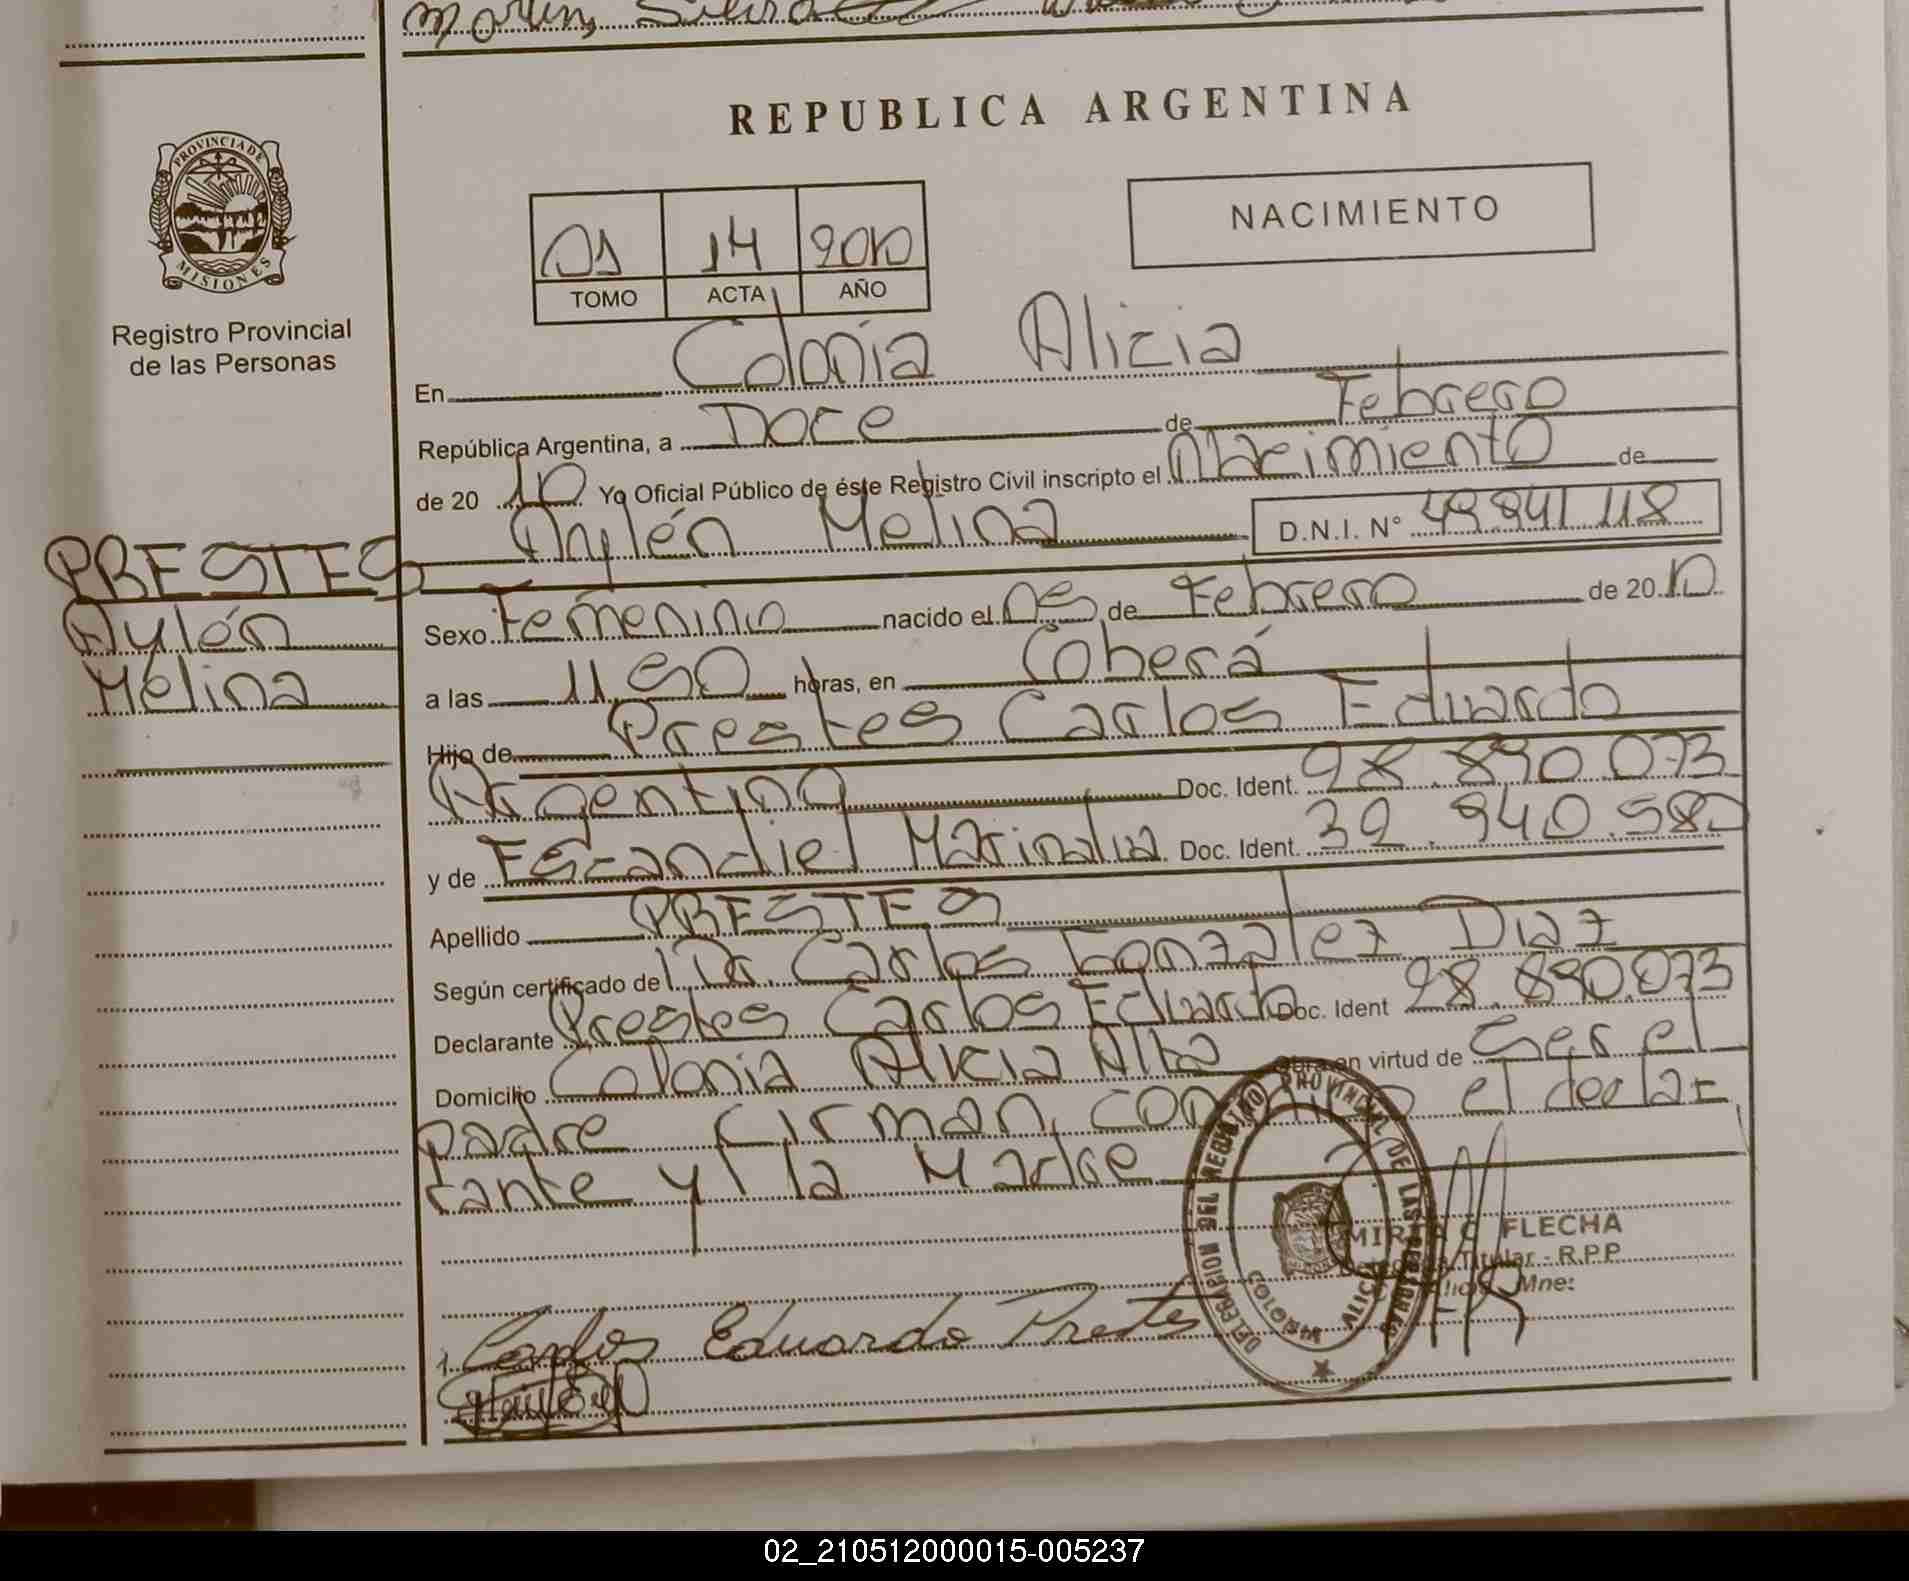 REPUBLICA ARGENTINA
PROVINCIA DE
MISIONES
Registro Provincial
de las Personas
NACIMIENTO
01 14 2010
TOMO ACTA AÑO
En Colonia Alicia
República Argentina, a Doce de Febrero
de 20 10 Yo Oficial Público de éste Registro Civil inscripto el Nacimiento de
Aylén Melina D.N.I. N° 49.841.118
PRESTES
Aylén
Melina
Sexo Femenino nacido el 05 de Febrero de 20 10
a las 11,50 horas, en Coberá
Hijo de Prestes Carlos Eduardo
Argentino Doc. Ident. 28.890.073
y de Escandiel Marindia Doc. Ident. 39.940.580
Apellido PRESTES
Según certificado de Dr. Carlos Gonzalez Diaz
Declarante Prestes Carlos Eduardo Doc. Ident 28.890.073
Domicilio Colonia Alicia Alta Obra en virtud de Ser el
padre Firman, el declar
rante y la Madre
DELEGACION DEL REGISTRO PROVINCIAL DE LAS PERSONAS
COLONIA ALICIA
MIRTA C. FLECHA
Titular - R.P.P.
Mne:
Carlos Eduardo Prestes
02_210512000015-005237